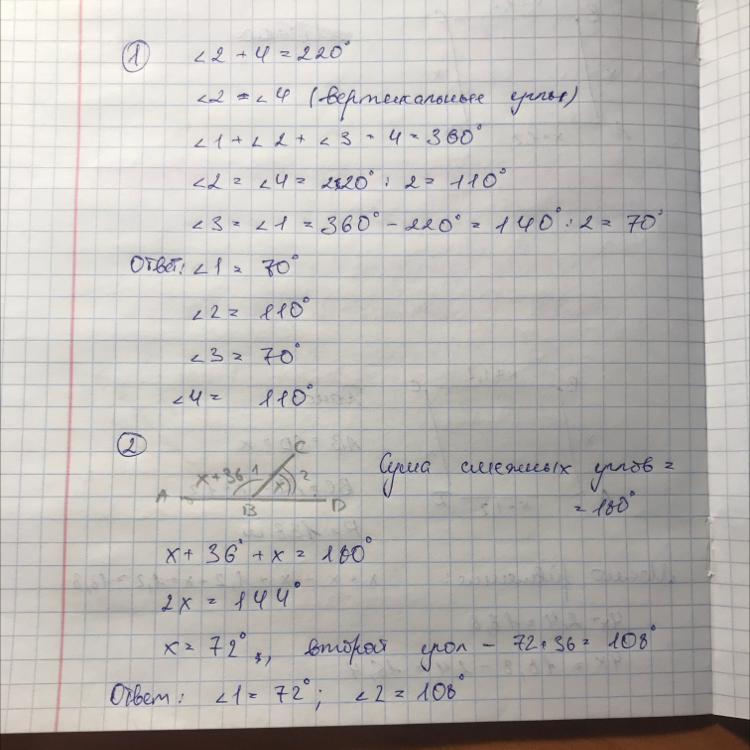 1 ∠2 + 4 = 220°
∠2 = ∠4 (вертикальные углы)
∠1 + ∠2 + ∠3 = 4 = 360°
∠2 = ∠4 = 220° : 2 = 110°
∠3 = ∠1 = 360° - 220° = 140° : 2 = 70°
Ответ: ∠1 = 70°
∠2 = 110°
∠3 = 70°
∠4 = 110°
2
C
x+36 1 x 2
A B D
Сума смежных углов =
= 180°
x + 36° + x = 180°
2x = 144°
x = 72°, второй угол - 72+36 = 108°
Ответ: ∠1 = 72°; ∠2 = 108°